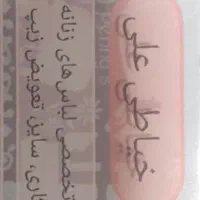 خیاطی علی
تخصصی لباس‌های زنانه
سایز، تعویض زیپ